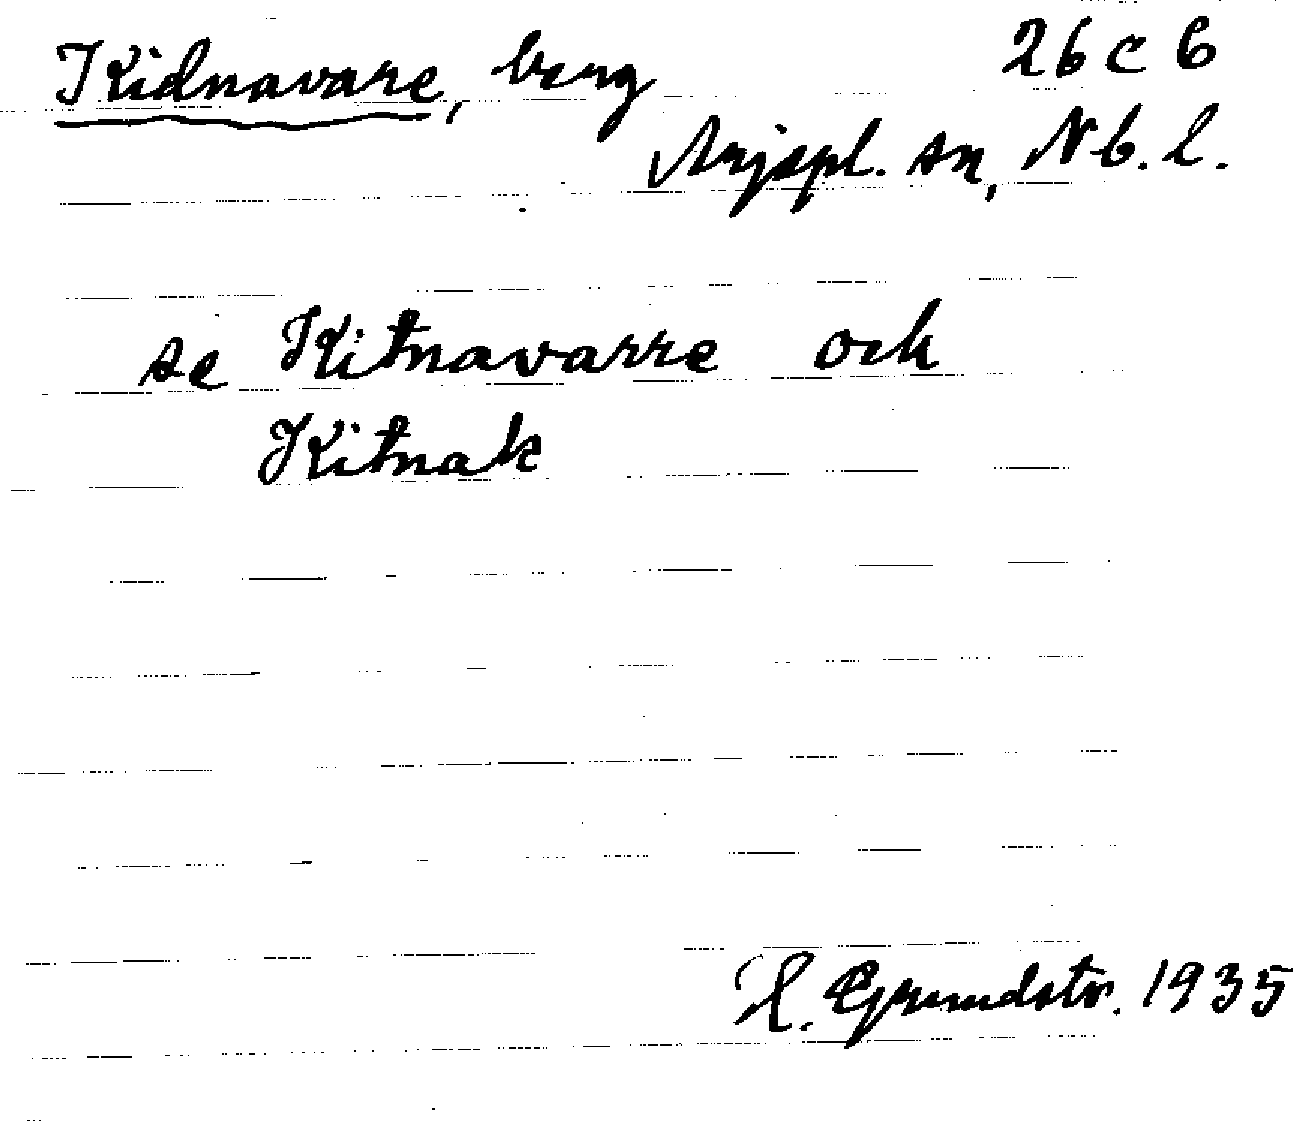 Kidnavare, berg 26 c 6
Arjepl. sn, Nb. l.
se Kitnavarre och
Kitnak
H. Grundstr. 1935